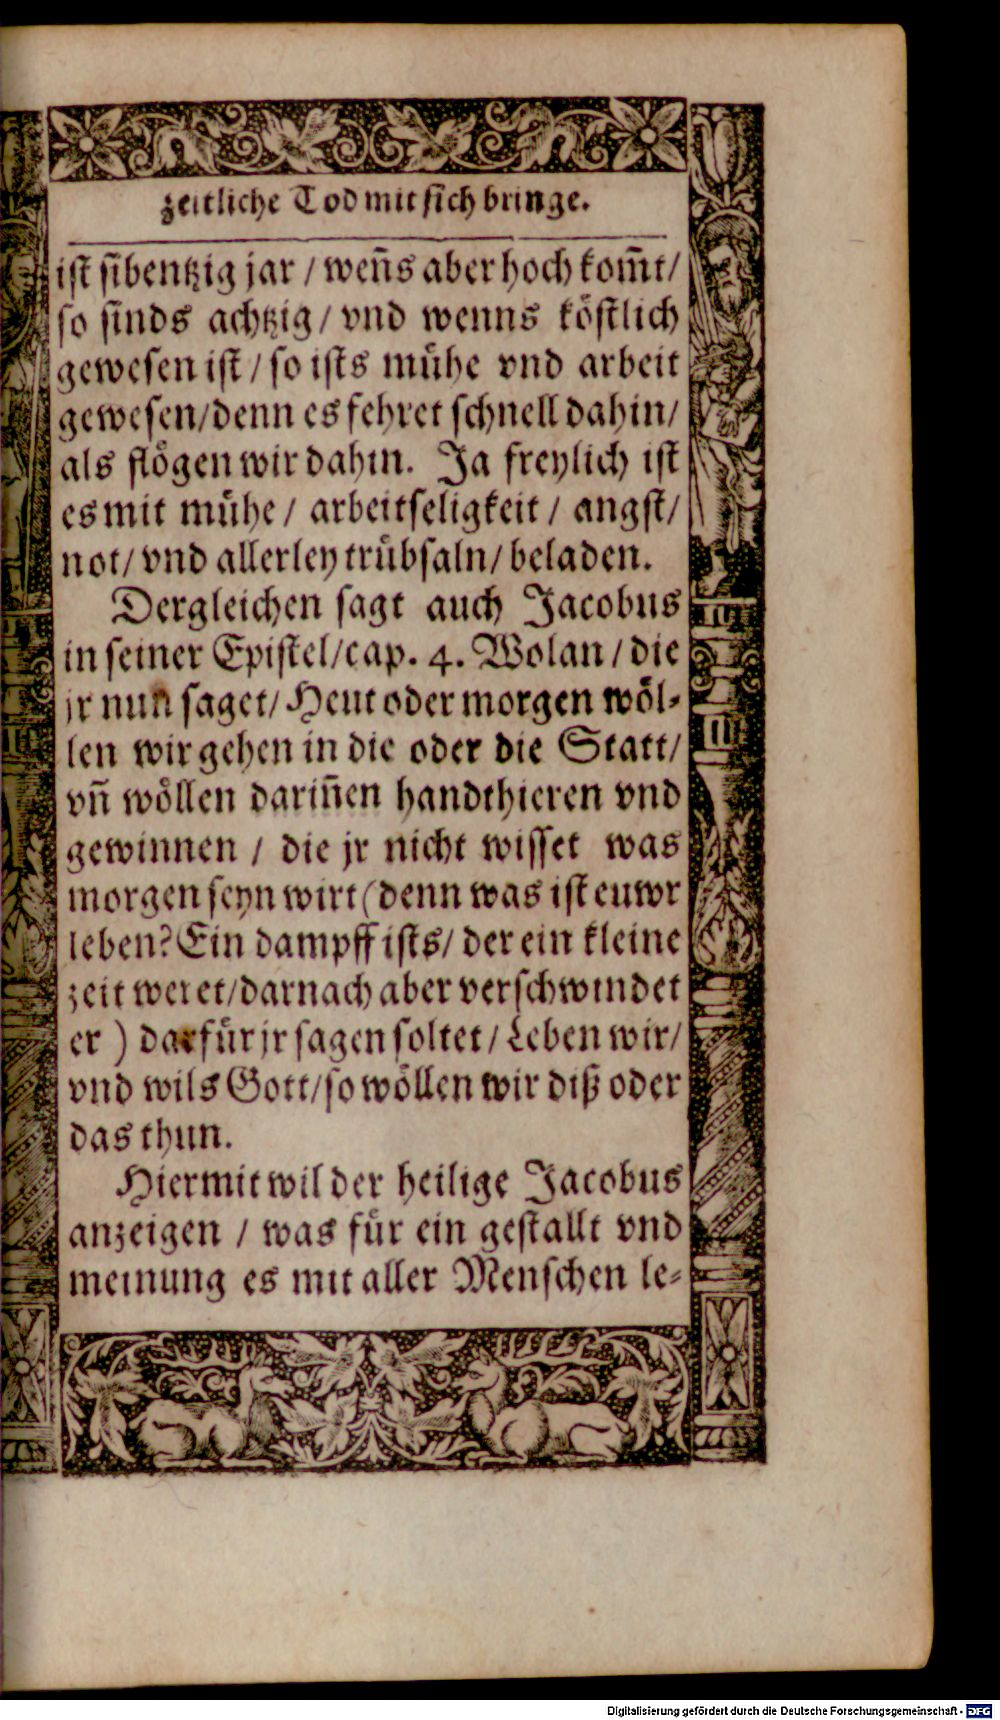 zeitliche Tod mit sich bringe.
ist sibentzig jar / weñs aber hoch kom̃t/
so sinds achtzig/ vnd wenns koͤstlich
gewesen ist / so ists muͤhe vnd arbeit
gewesen/denn es fehret schnell dahin/
als floͤgen wir dahin. Ja freylich ist
es mit muͤhe / arbeitseligkeit / angst/
not/ vnd allerley truͤbsaln/ beladen.
Dergleichen sagt auch Jacobus
in seiner Epistel/cap. 4. Wolan / die
jr nun saget/ Heut oder morgen woͤl-
len wir gehen in die oder die Statt/
vñ woͤllen dariñen handthieren vnd
gewinnen / die jr nicht wisset was
morgen seyn wirt (denn was ist euwr
leben? Ein dampff ists/ der ein kleine
zeit weret/darnach aber verschwindet
er ) darfuͤr jr sagen soltet/ Leben wir/
vnd wils Gott/so woͤllen wir diß oder
das thun.
Hiermit wil der heilige Jacobus
anzeigen / was fuͤr ein gestallt vnd
meinung es mit aller Menschen le-
Digitalisierung gefördert durch die Deutsche Forschungsgemeinschaft - DFG